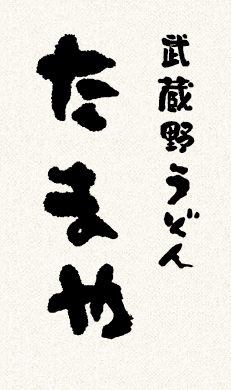 武蔵野うどん
たまや